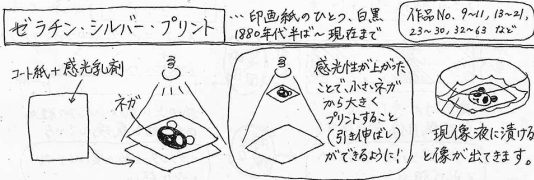 ゼラチン・シルバー・プリント
…印画紙のひとつ、白黒
1880年代半ば～現在まで
作品No. 9~11, 13~21,
23~30, 32~63 など
コート紙+感光乳剤
ネガ
感光性が上がった
ことで、小さいネガ
から大きく
プリントすること
(引き伸ばし)
ができるように!
現像液に漬ける
と像が出てきます。